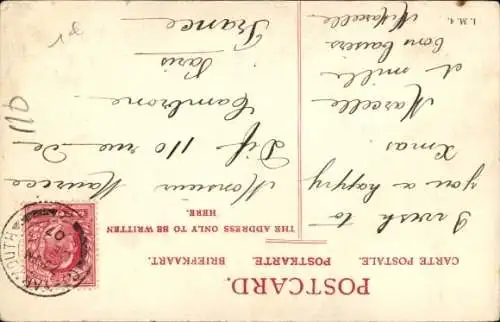 POSTCARD.
CARTE POSTALE. POSTKARTE. BRIEFKAART.
THE ADDRESS ONLY TO BE WRITTEN
HERE.
I wish to
you a happy
Xmas
Marcelle
et mille
bons baisers
Marcelle
Monsieur Maurice
110 rue de
Cambrone
Paris
France
110
I. M. 4.